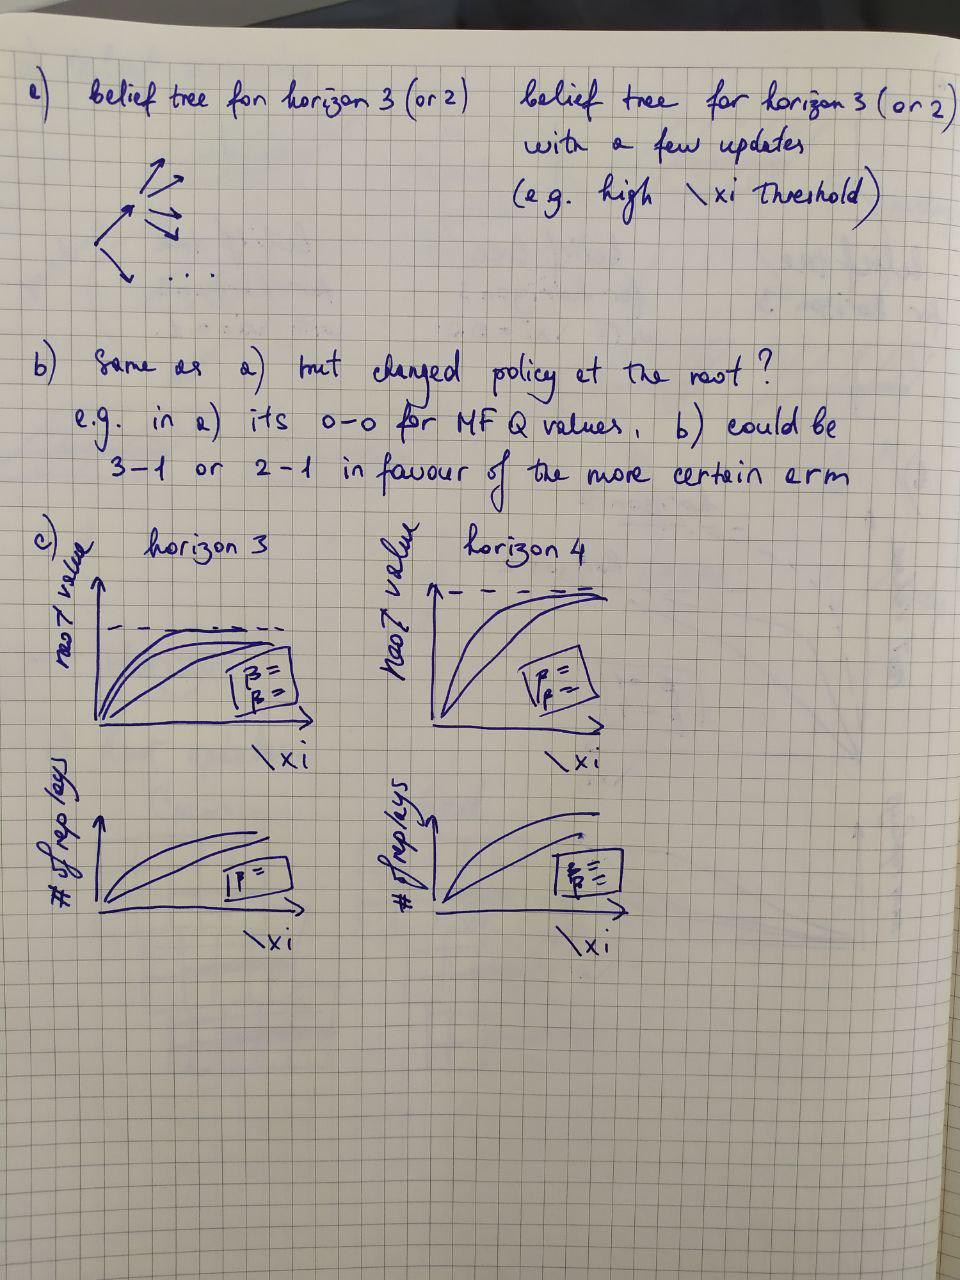 a) belief tree for horizon 3 (or 2)
belief tree for horizon 3 (or 2)
with a few updates
(e.g. high \xi threshold)
. . .
b) Same as a) but changed policy at the root?
e.g. in a) its 0-0 for MF Q values, b) could be
3-1 or 2-1 in favour of the more certain arm
c) horizon 3
root value
β =
β =
\xi
horizon 4
root value
β =
β =
\xi
# of replays
β =
\xi
# of replays
β =
β =
\xi